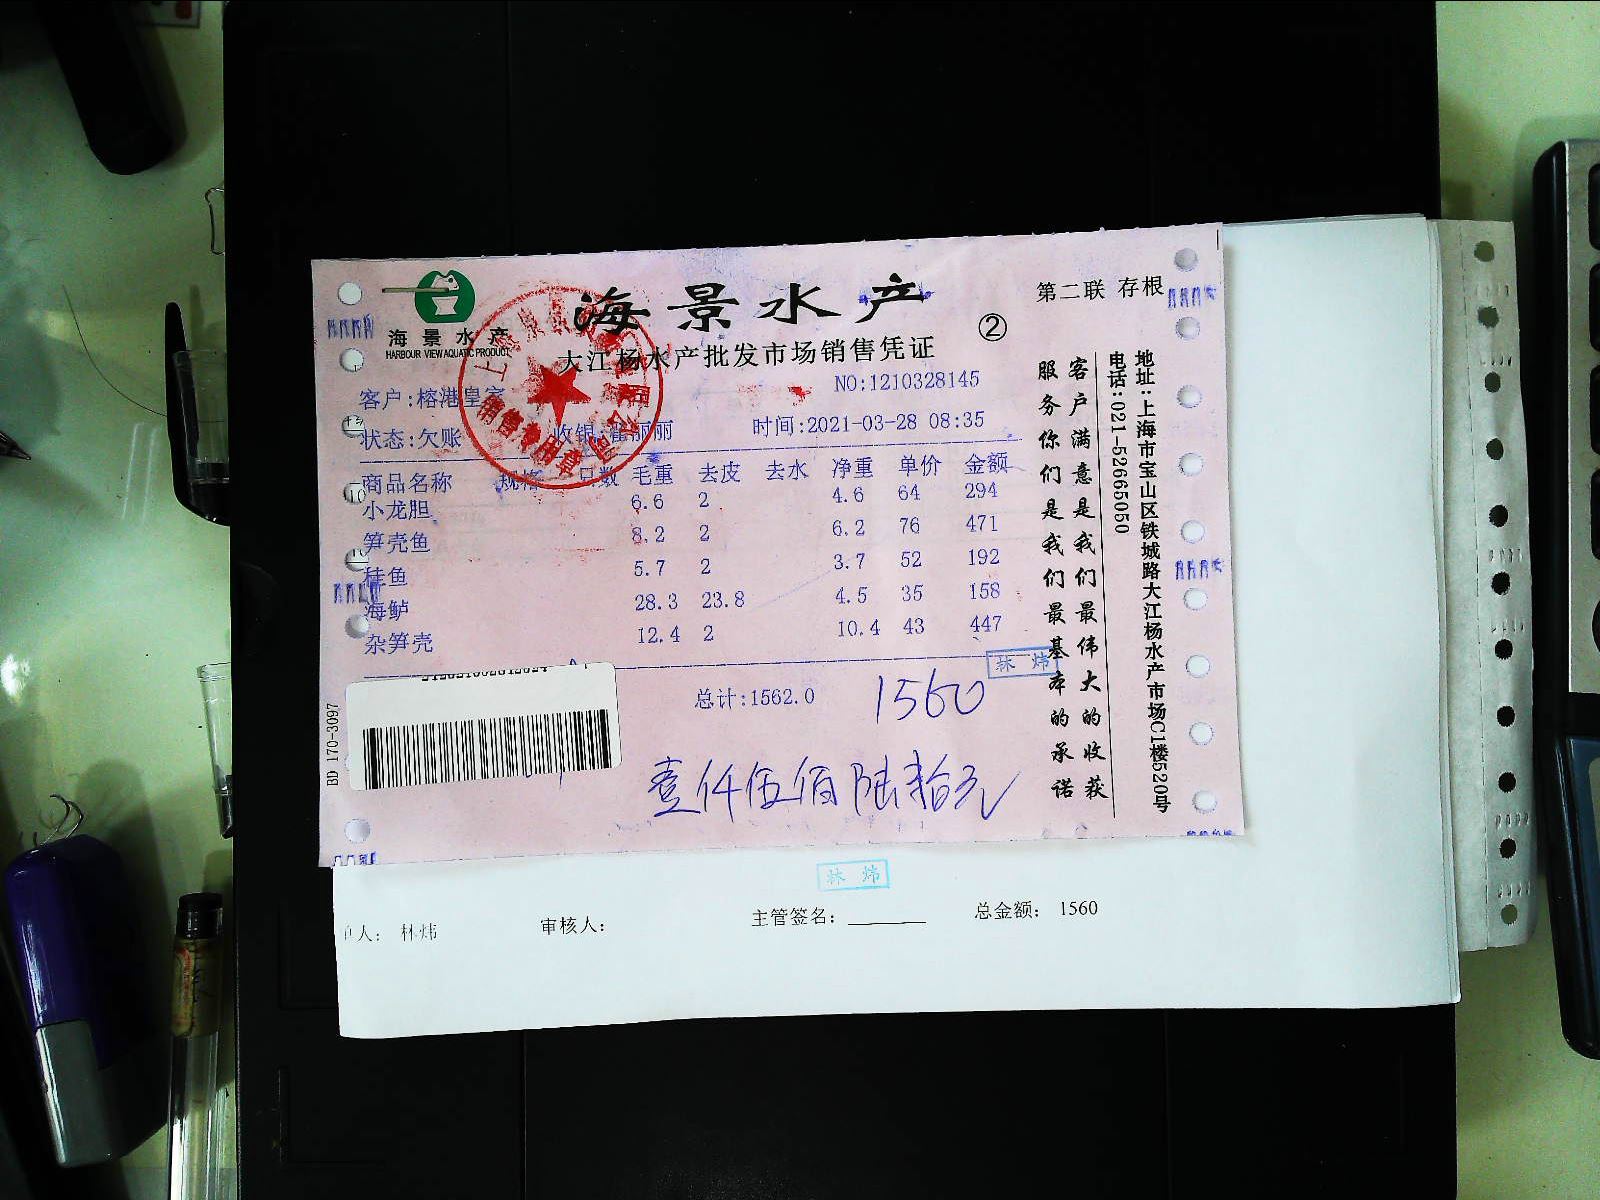 海景水产
HARBOUR VIEW AQUATIC PRODUCT
海景水产
②
第二联 存根
大江杨水产批发市场销售凭证
NO:1210328145
客户:榕港皇家
状态:欠账
收银:
丽丽
时间:2021-03-28 08:35
商品名称 规格 只数 毛重 去皮 去水 净重 单价 金额
小龙胆 6.6 2 4.6 64 294
笋壳鱼 8.2 2 6.2 76 471
桂鱼 5.7 2 3.7 52 192
海鲈 28.3 23.8 4.5 35 158
杂笋壳 12.4 2 10.4 43 447
林炜
总计:1562.0
1560
壹仟伍佰陆拾元
BD 170-3097
客户满意是我们最伟大的收获
服务你们是我们最基本的承诺
地址:上海市宝山区铁城路大江杨水产市场C1楼520号
电话:021-52665050
销售专用章
林炜
人: 林炜
审核人:
主管签名:
总金额: 1560